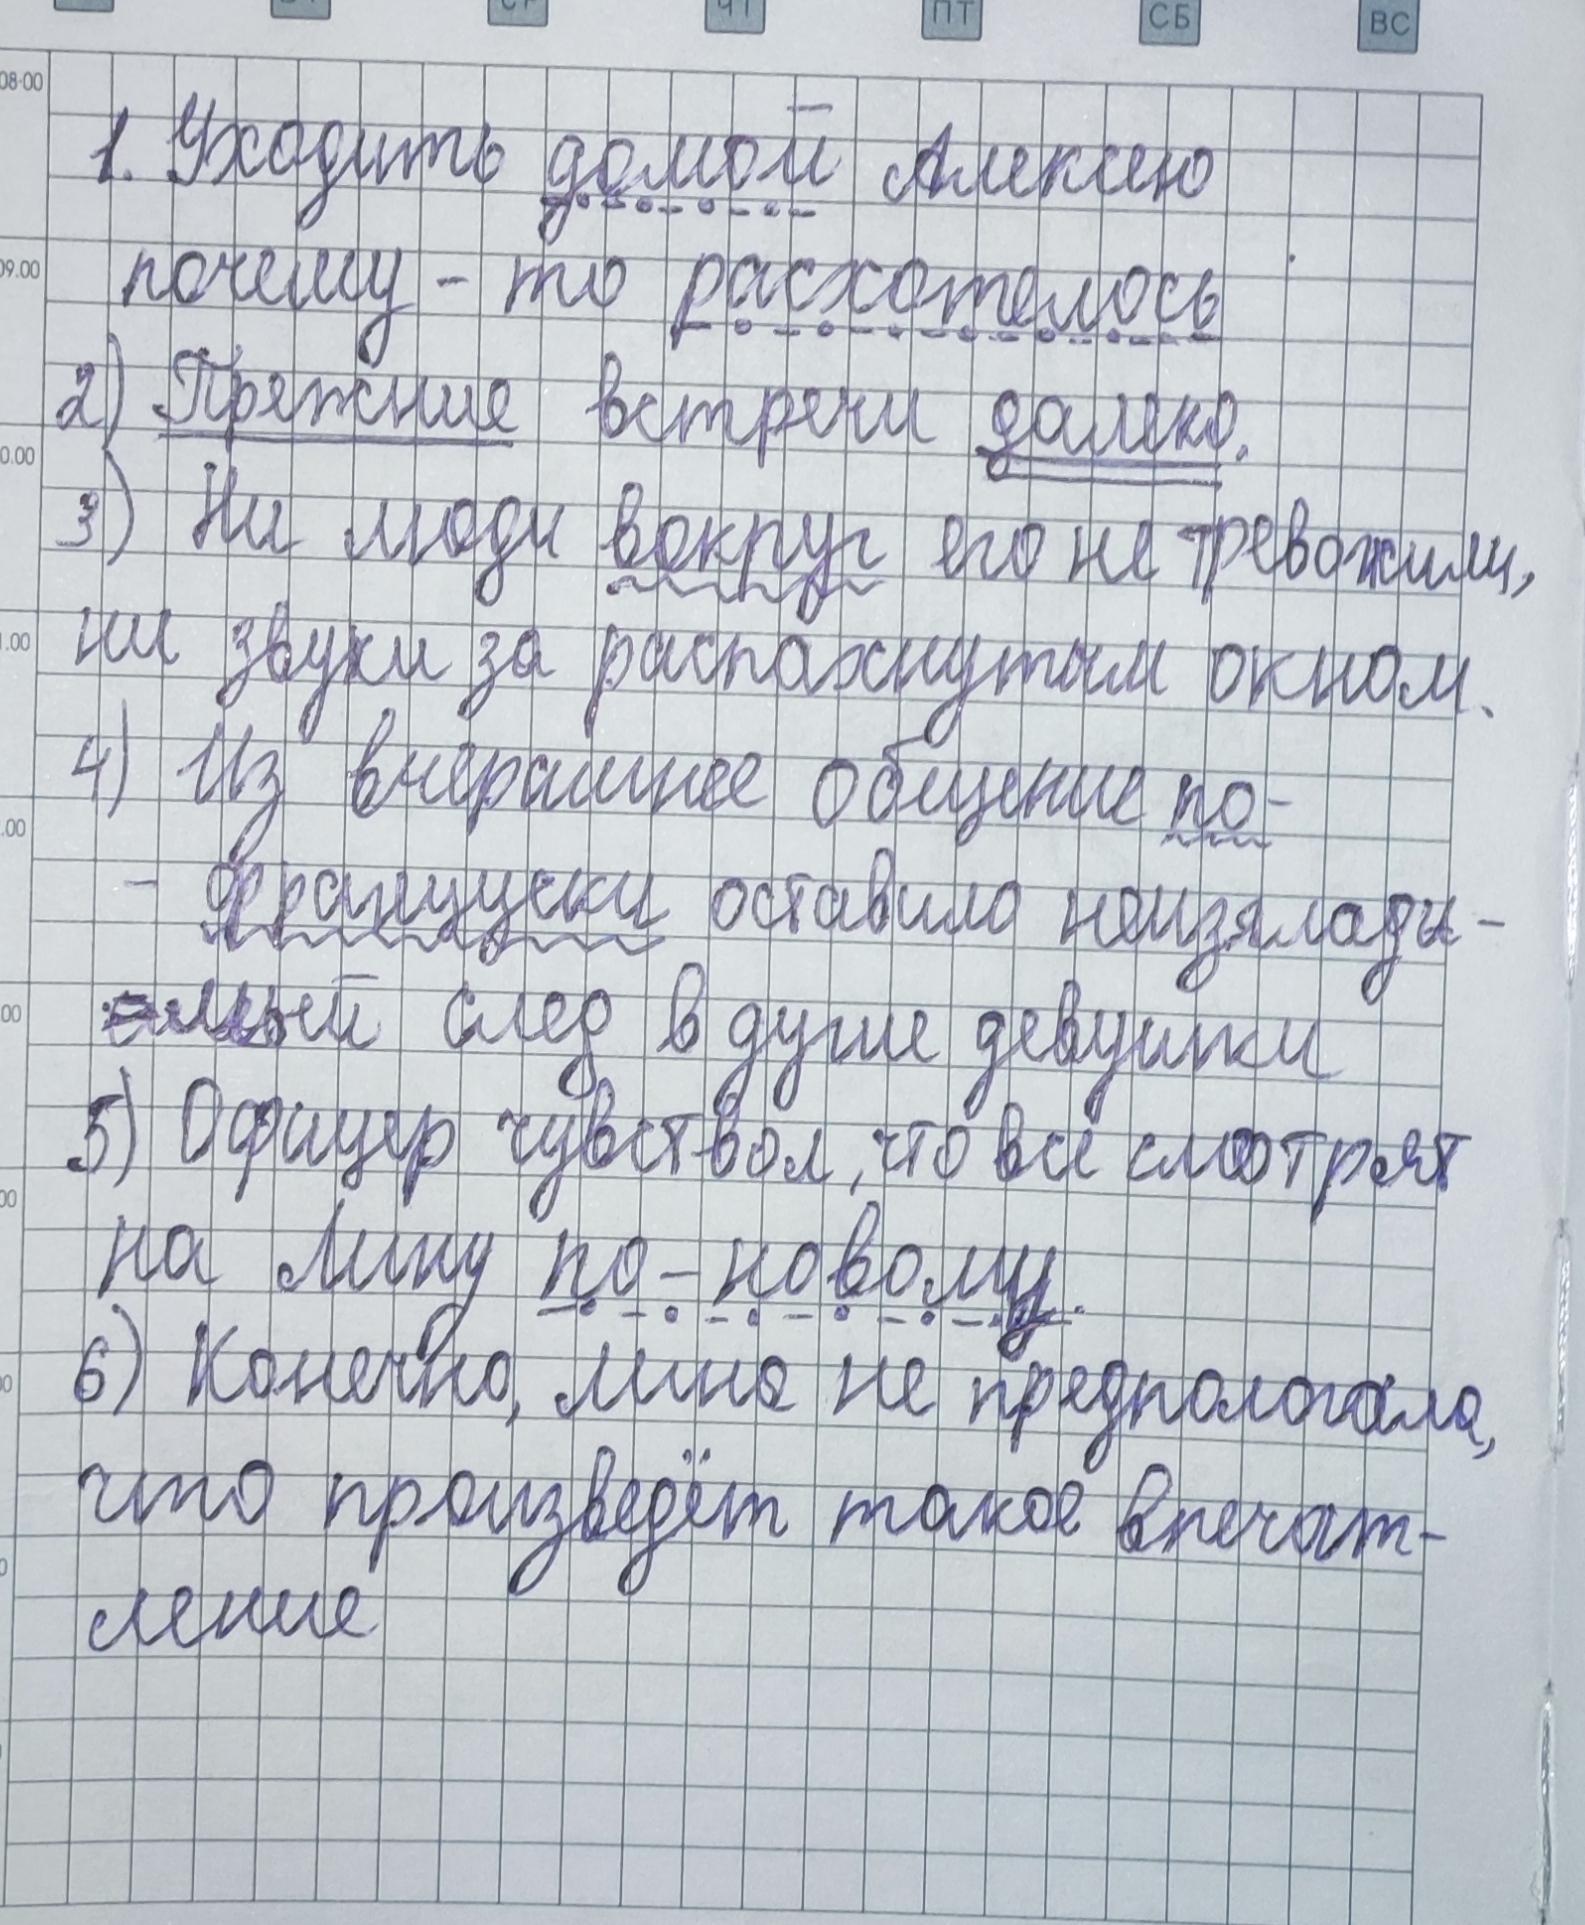 СР ЧТ ПТ СБ ВС
08:00
1. Уходить домой Алексею
09.00
почему-то расхотелось
2) Прежние встречи далеко.
0.00
3) Ни люди вокруг его не тревожили,
1.00
ни звуки за распахнутым окном.
4) Из вчерашнее общение по-
2.00
- французски оставило неизглади-
:00
мый след в душе девушки
5) Офицер чувствовал, что все смотрят
00
на Лину по-новому.
6) Конечно, Лина не предпологала,
00
что произведёт такое впечат-
0
ление